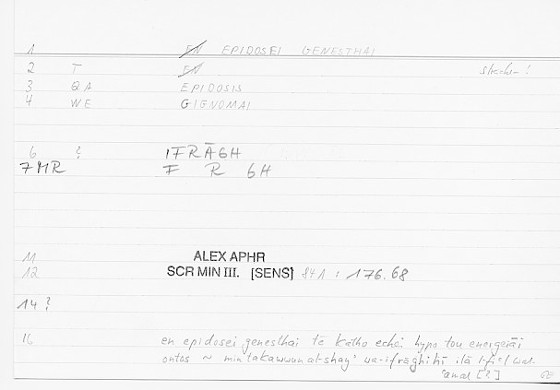 1 E̶N̶ EPIDOSEI GENESTHAI
2 T E̶N̶ streichen!
3 QA EPIDOSIS
4 WE GIGNOMAI
6 ? IFRĀGH
7 MR F R GH
11 ALEX APHR
12 SCR MIN III. [SENS] 841 : 176.68
14 ?
16 en epidosei genesthai tē katho echei hypo tou energeiāi
ontos ~ min takawwun al-shay' wa-ifrāghihī ilā l-fi'l wal-
'amal [?]